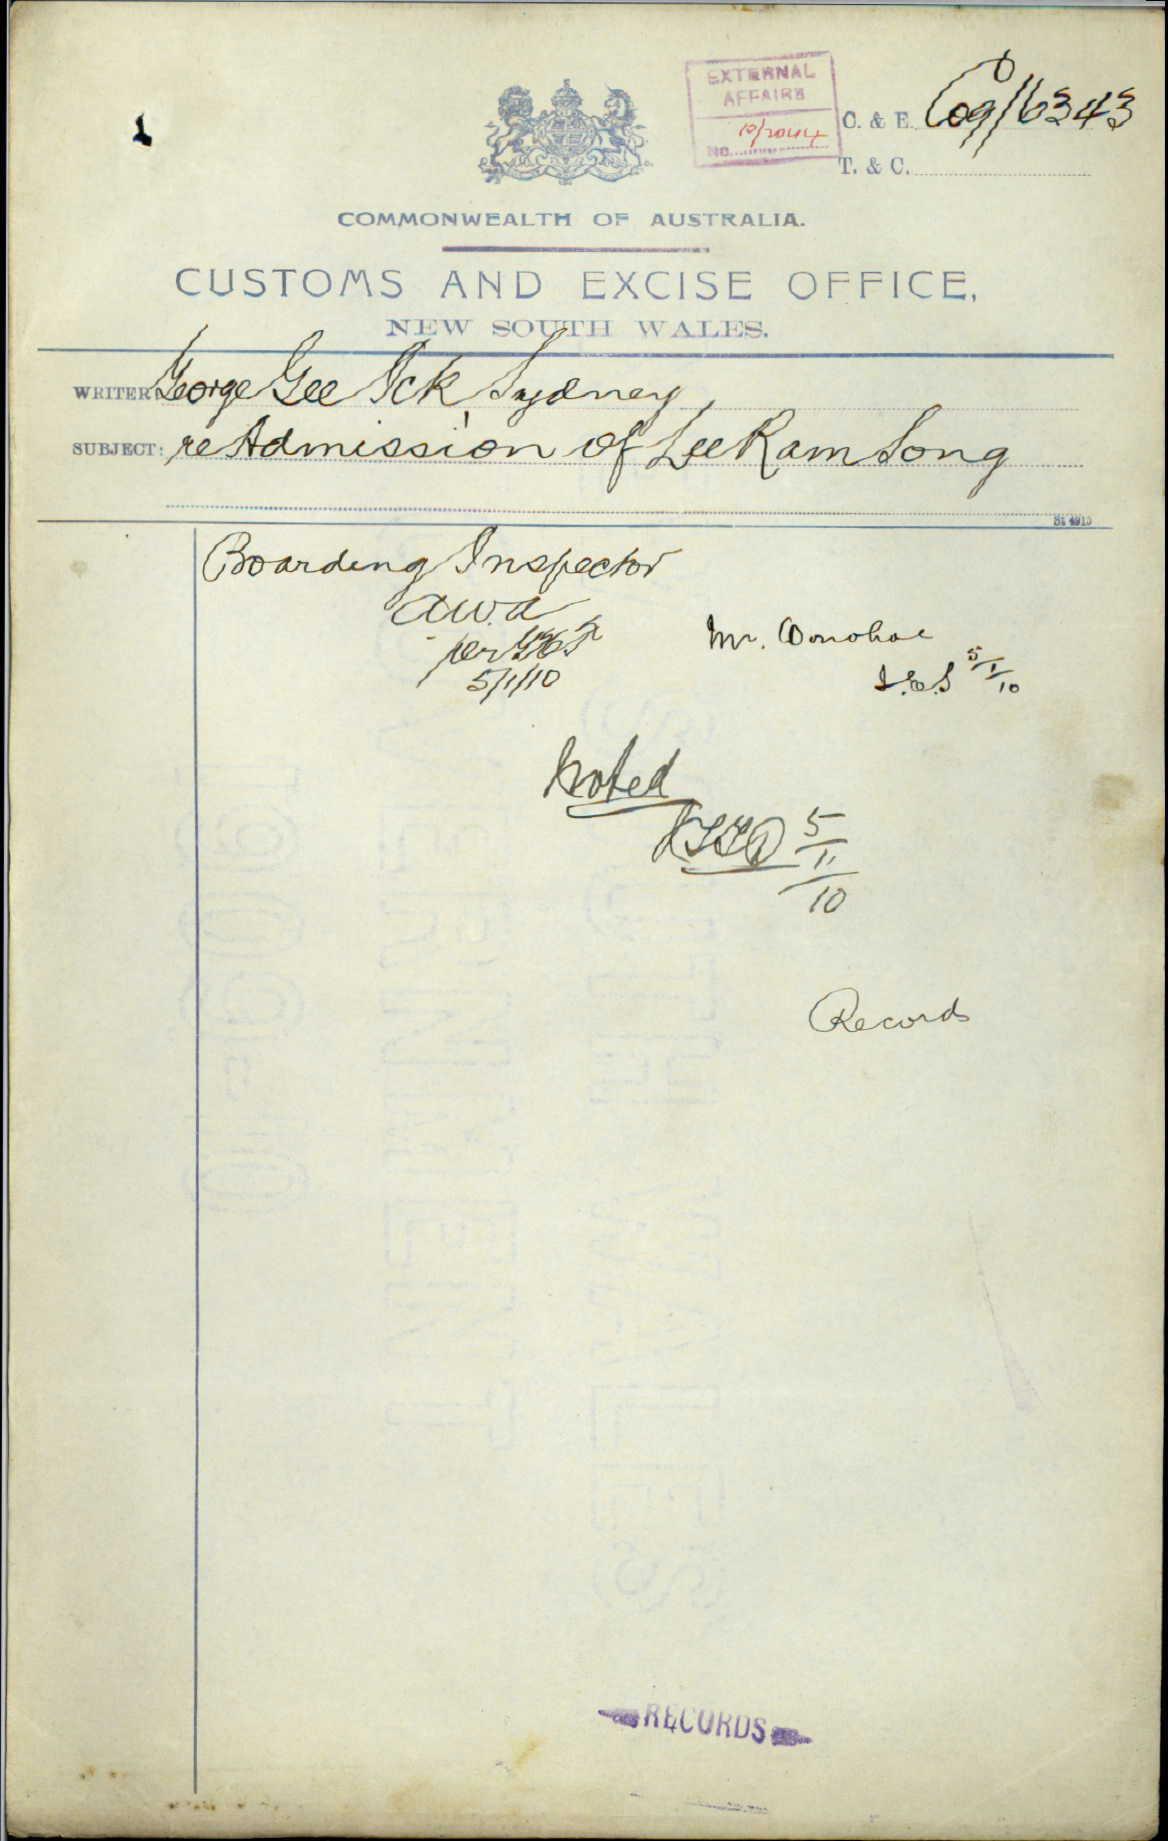 EXTERNAL
AFFAIRS
No. 10/2044
C. & E. C09/16343
T. & C.
COMMONWEALTH OF AUSTRALIA.
CUSTOMS AND EXCISE OFFICE,
NEW SOUTH WALES.
WRITER: George Gee Ick Sydney,
SUBJECT: re Admission of Lee Kam Song
St 4913
Boarding Inspector
A.W.A
per
5/1/10
Mr. Donohoe
5/1/10
Noted
5/1/10
Records
RECORDS